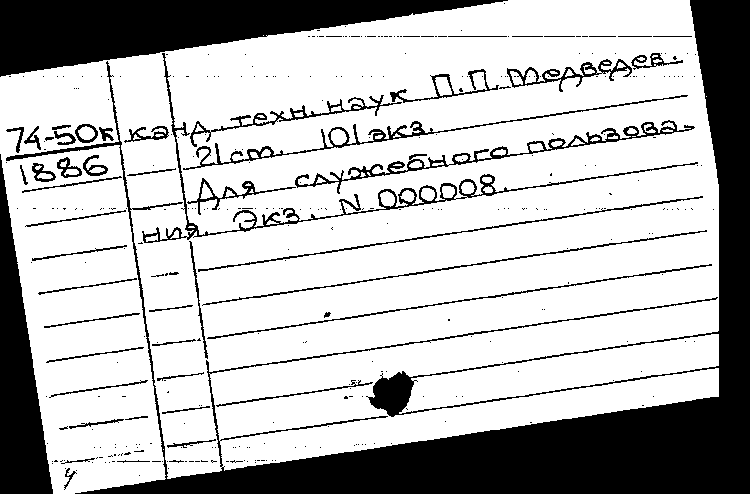 74-50к канд. техн. наук П.П. Медведев.
1886 21 ст. 101 экз.
Для служебного пользова-
ния. Экз. N 000008.